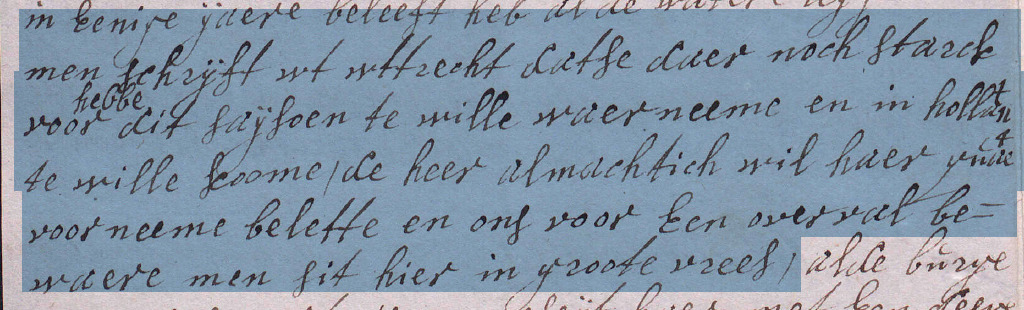 in Eenige jaere beleeft heb al de water
men schrijft wt wttrecht datse daer noch starck
hebbe
voor dit saijsoen te wille waerneeme en in hollant
te wille koome / de heer almachtich wil haer quat
voorneeme belette en ons voor Een overval be=
waere men sit hier in groote vrees / alde burge